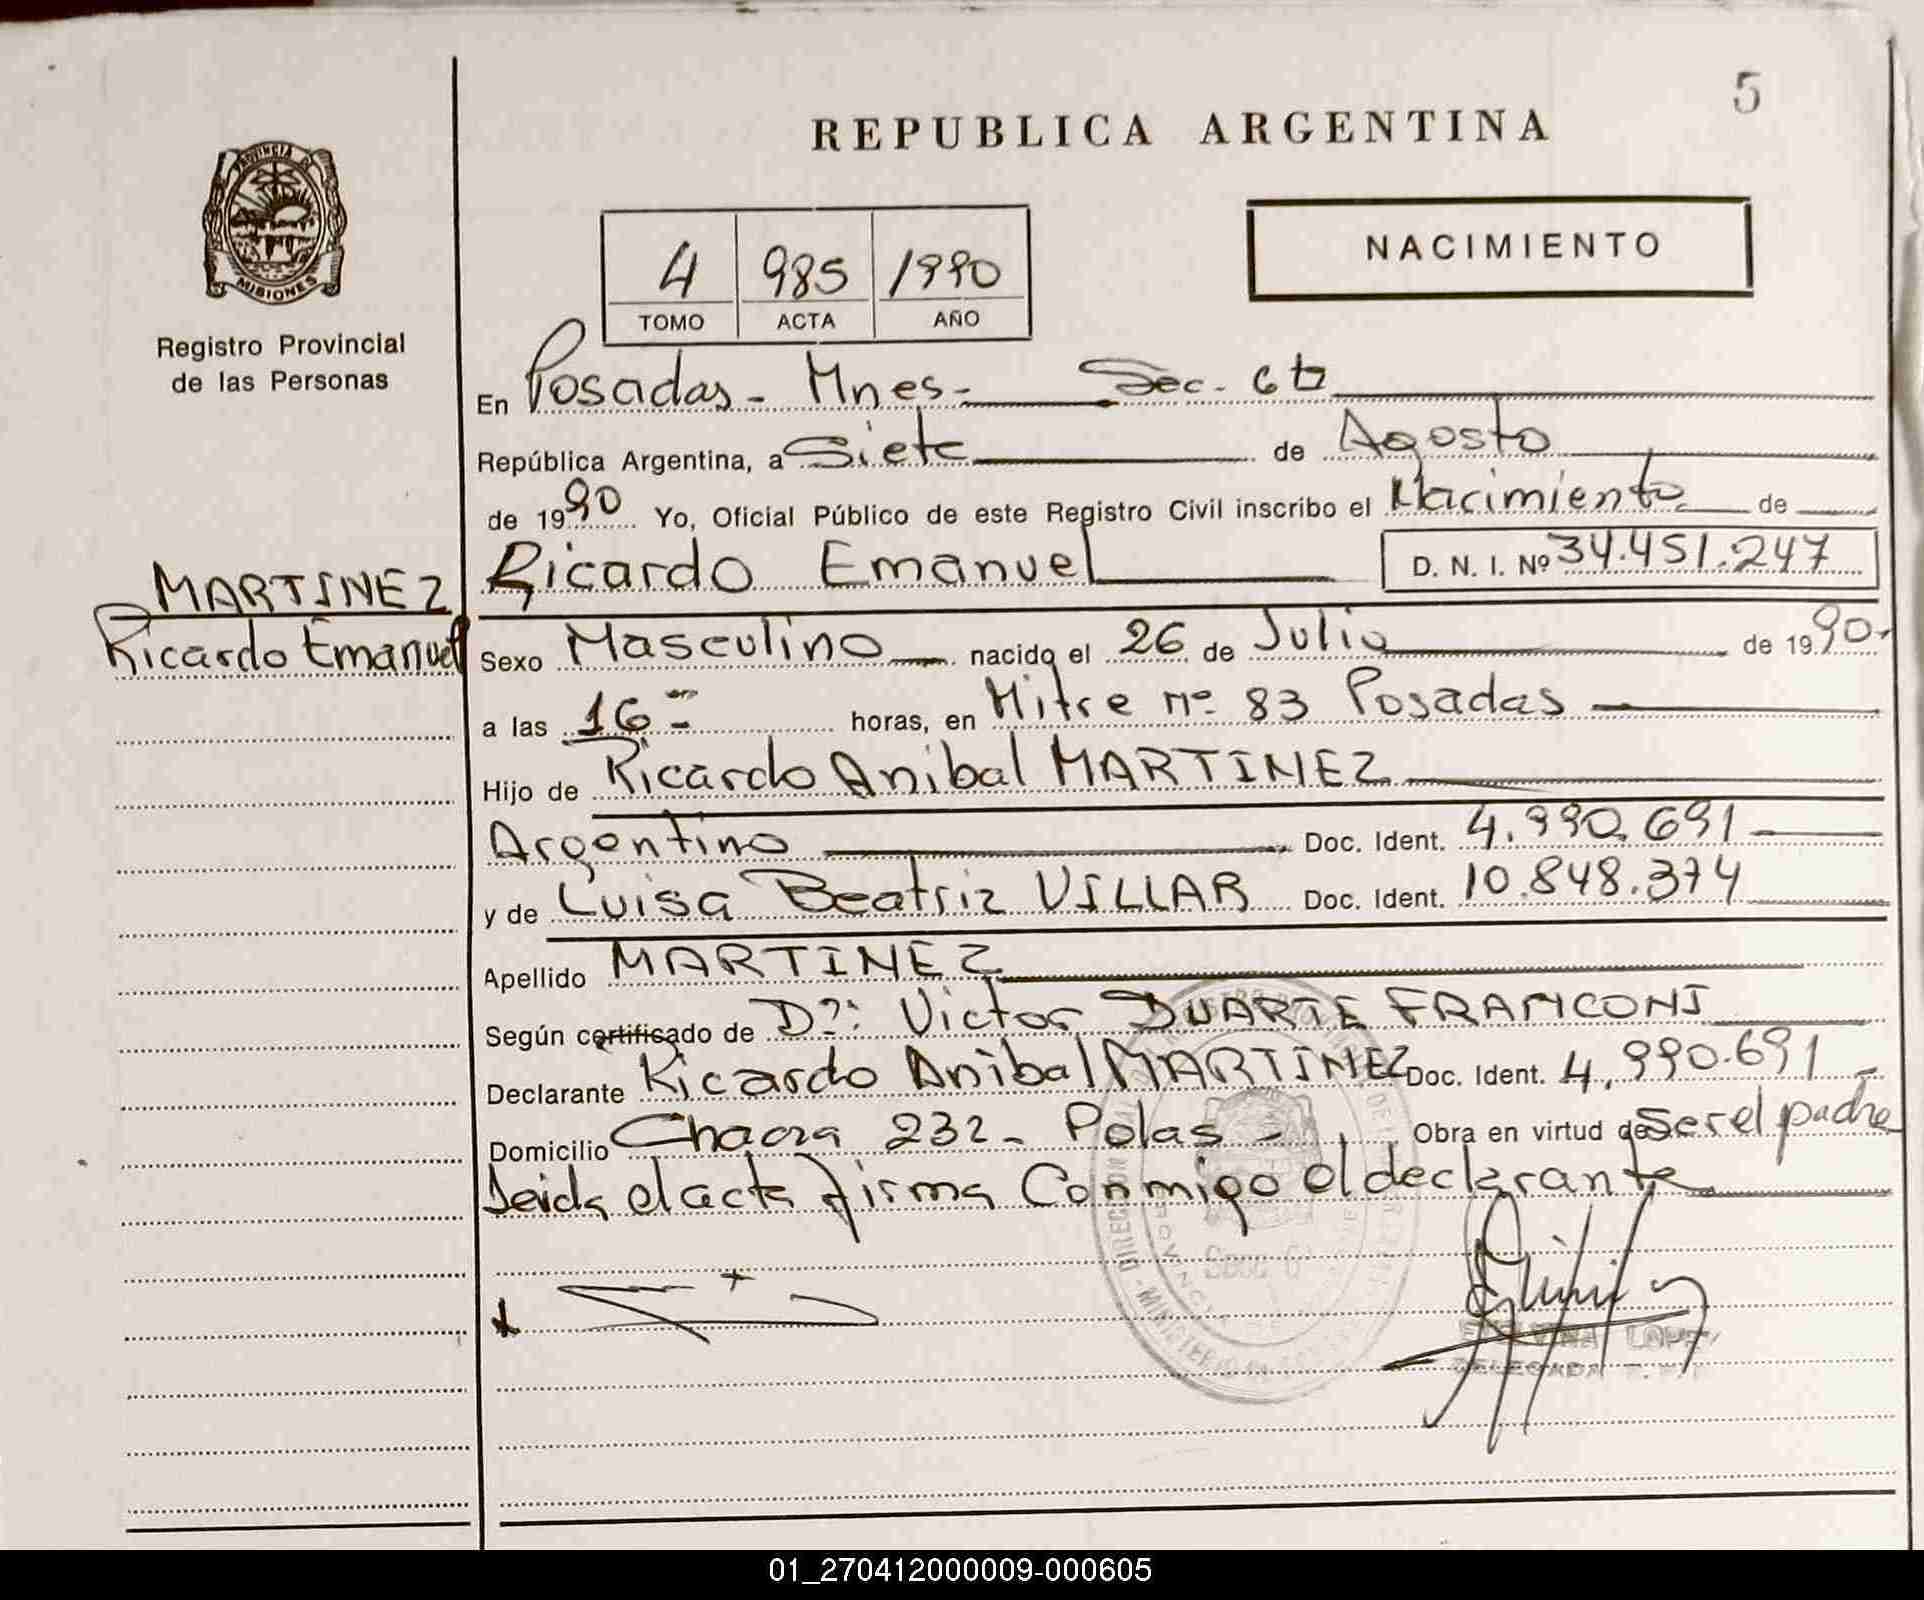 5
REPUBLICA ARGENTINA
PROVINCIA DE
MISIONES
Registro Provincial
de las Personas
4 985 1990
TOMO ACTA AÑO
NACIMIENTO
En Posadas - Mnes - Sec - 6ta
República Argentina, a Siete de Agosto
de 1990 Yo, Oficial Público de este Registro Civil inscribo el Nacimiento de
MARTINEZ
Ricardo Emanuel
Ricardo Emanuel D. N. I. Nº 34.451.247
Sexo Masculino nacido el 26 de Julio de 1990.
a las 16 horas, en Mitre nº 83 Posadas
Hijo de Ricardo Anibal MARTINEZ
Argentino Doc. Ident. 4.990.691
y de Luisa Beatriz VILLAR Doc. Ident. 10.848.374
Apellido MARTINEZ
Según certificado de Dr: Victor DUARTE FRANCONI
Declarante Ricardo Anibal MARTINEZ Doc. Ident. 4.990.691
Domicilio Chacra 232 - Pdas - Obra en virtud de Ser el padre
Leida el acta firma Conmigo el declarante
LOPEZ
DELEGADA
01_270412000009-000605